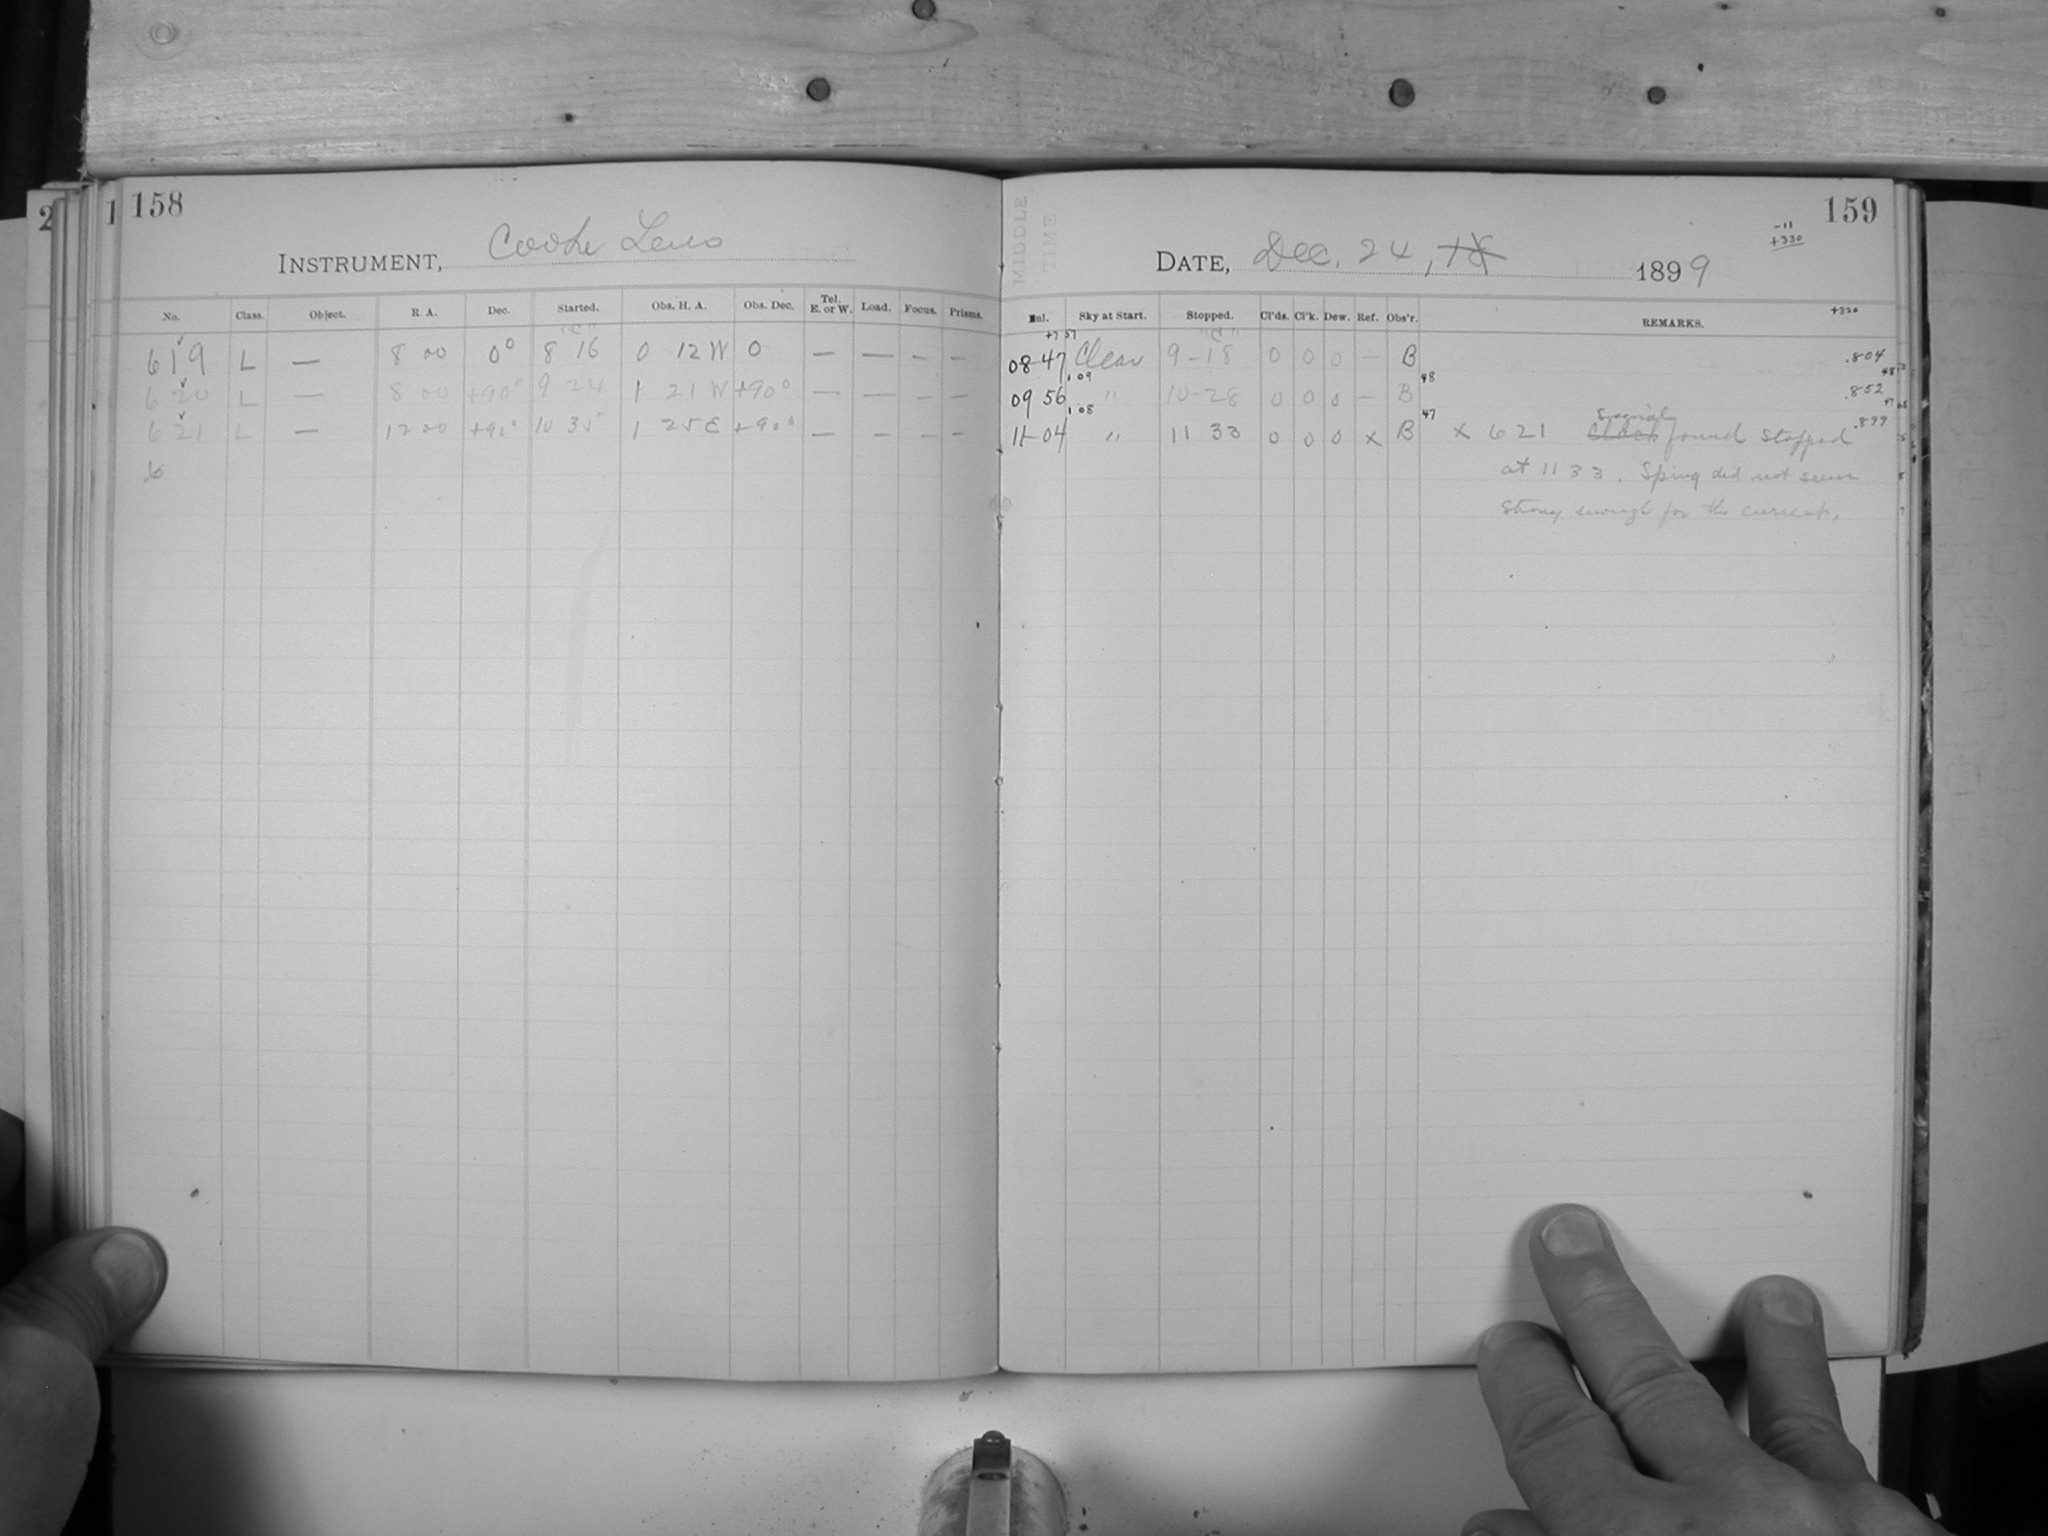 2 1 158
INSTRUMENT, Cooke Lens
No. Class. Object. R. A. Dec. Started. Obs. H. A. Obs. Dec. Tel. E. or W. Load. Focus. Prisms.
"C"
619 L — 8 00 0° 8 16 0 12 W 0 — — — —
620 L — 8 00 +90° 9 24 1 21 W +90° — — — —
621 L — 12 00 +90° 10 35 1 25 E +90° — — — —
6
159
MIDDLE
TIME
-11
+330
DATE, Dec. 24, 1899
+320
Sky at Start. Stopped. Cl'ds. Cl'k. Dew. Ref. Obs'r. REMARKS.
+7 57 "C"
08 47 Clear 9-18 0 0 0 — B .804
1 09 48 48
09 56 " 10-28 0 0 0 — B .852
1 08 47 47
11 04 " 11 33 0 0 0 x B x 621 Clock found stopped .899
at 11 33. Spring did not seem
strong enough for the current.